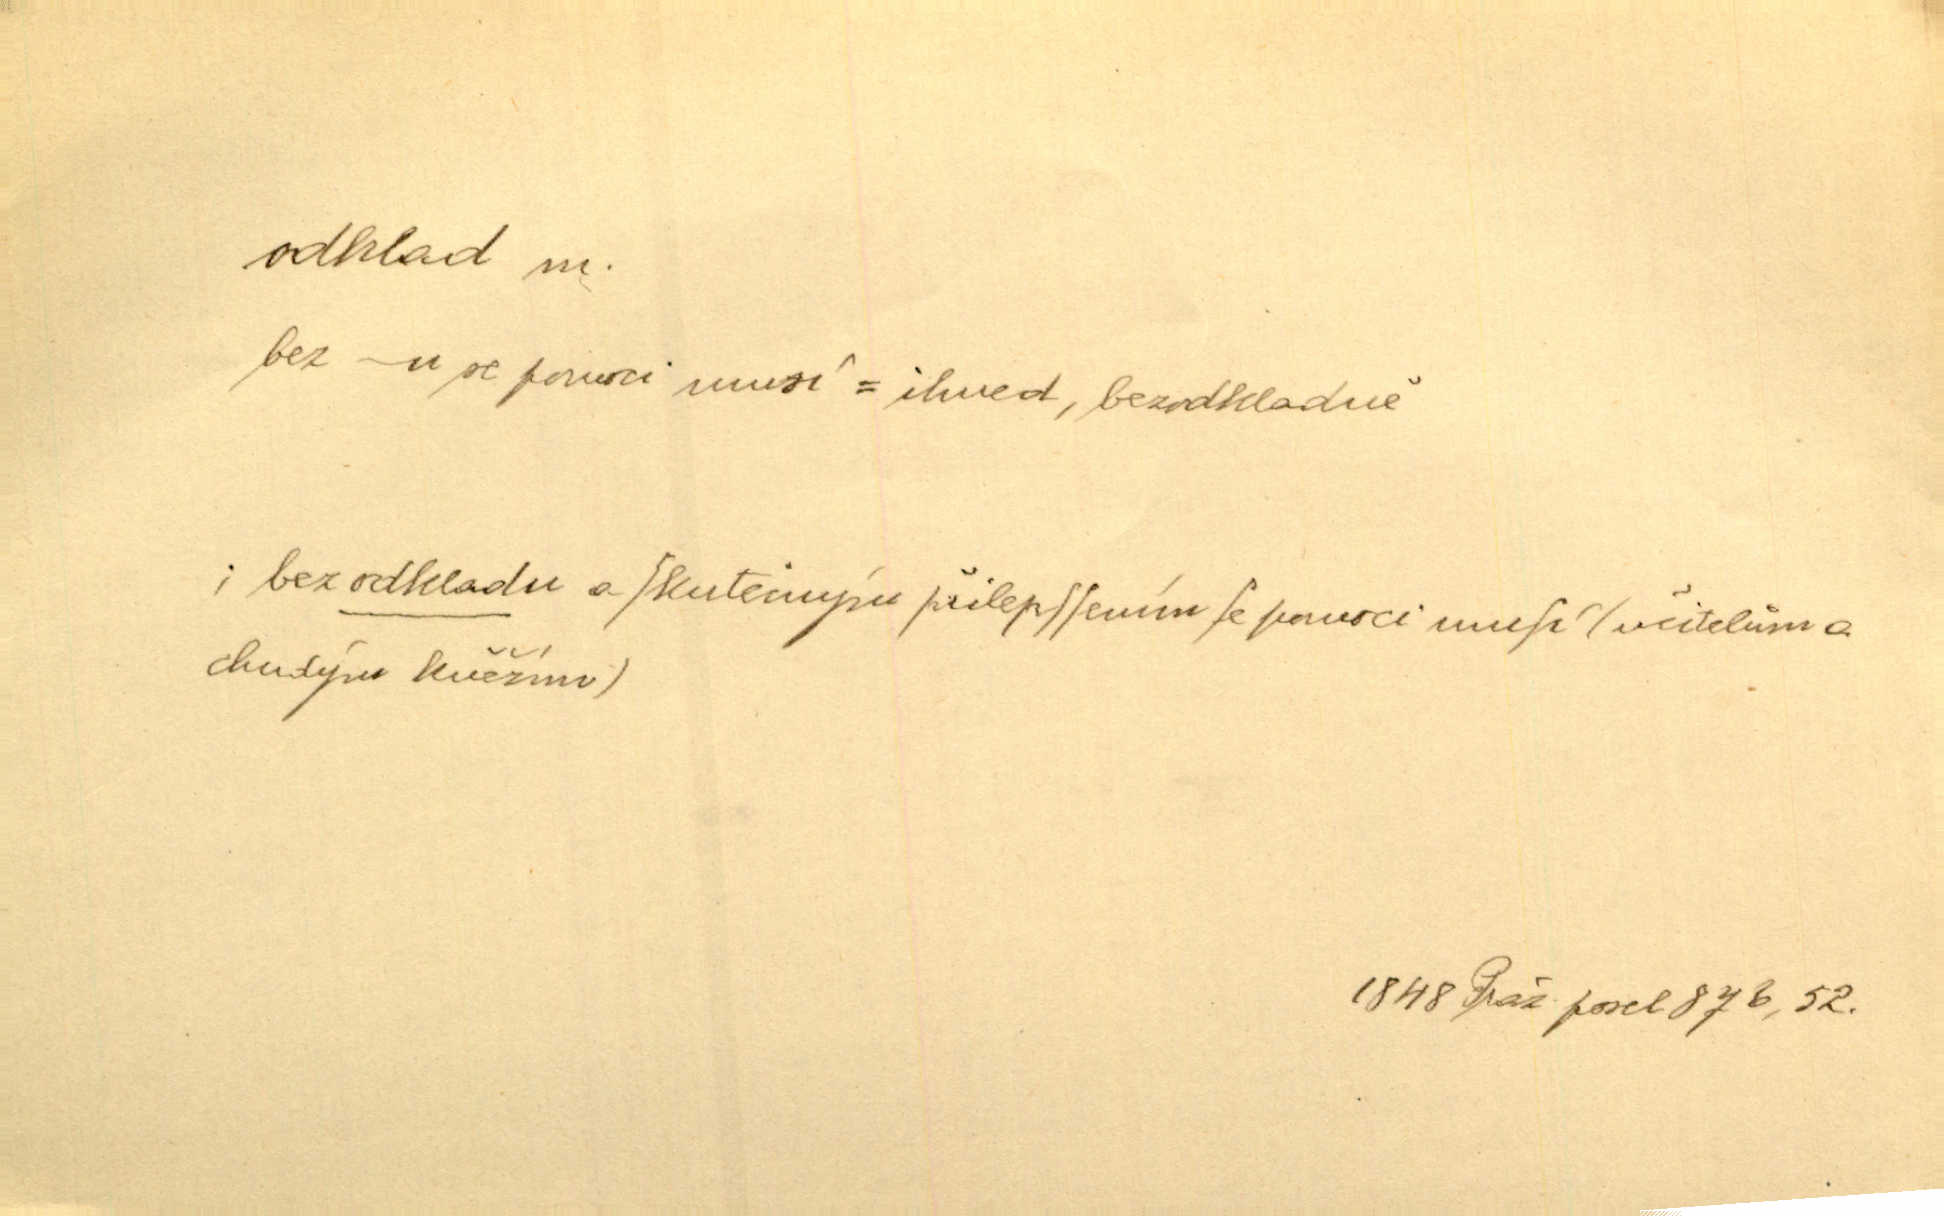 odklad m.
bez ~u se pomoci musí = ihned, bezodkladně
i bez odkladu a ſkutečným přilepſſením ſe pomoci muſí (učitelům a
chudým kněžím)
1848 Praž. posel 87 b, 52.